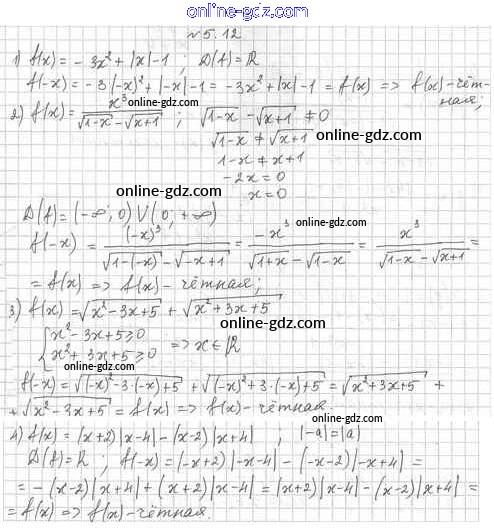 online-gdz.com
№5.12
1) f(x) = - 3x² + |x| - 1 ; D(f) = ℝ
f(-x) = - 3(-x)² + |-x| - 1 = - 3x² + |x| - 1 = f(x) => f(x) - чёт-
ная;
2) f(x) = x³ / (√(1-x) - √(x+1)) ; √(1-x) - √(x+1) ≠ 0
online-gdz.com
√(1-x) ≠ √(x+1)
online-gdz.com
1-x ≠ x+1
-2x = 0
online-gdz.com
x = 0
D(f) = (-∞; 0) ∪ (0; +∞)
online-gdz.com
f(-x) = (-x)³ / (√(1-(-x)) - √(-x+1)) = -x³ / (√(1+x) - √(1-x)) = x³ / (√(1-x) - √(x+1)) =
= f(x) => f(x) - чётная;
online-gdz.com
3) f(x) = √(x² - 3x + 5) + √(x² + 3x + 5)
online-gdz.com
{ x² - 3x + 5 ≥ 0
x² + 3x + 5 ≥ 0 => x ∈ ℝ
online-gdz.com
f(-x) = √((-x)² - 3·(-x) + 5) + √((-x)² + 3·(-x) + 5) = √(x² + 3x + 5) +
+ √(x² - 3x + 5) = f(x) => f(x) - чётная.
online-gdz.com
4) f(x) = (x+2)|x-4| - (x-2)|x+4| ; |-a| = |a|
D(f) = ℝ ; f(-x) = (-x+2)|-x-4| - (-x-2)|-x+4| =
= - (x-2)|x+4| + (x+2)|x-4| = (x+2)|x-4| - (x-2)|x+4| =
= f(x) => f(x) - чётная.
online-gdz.com